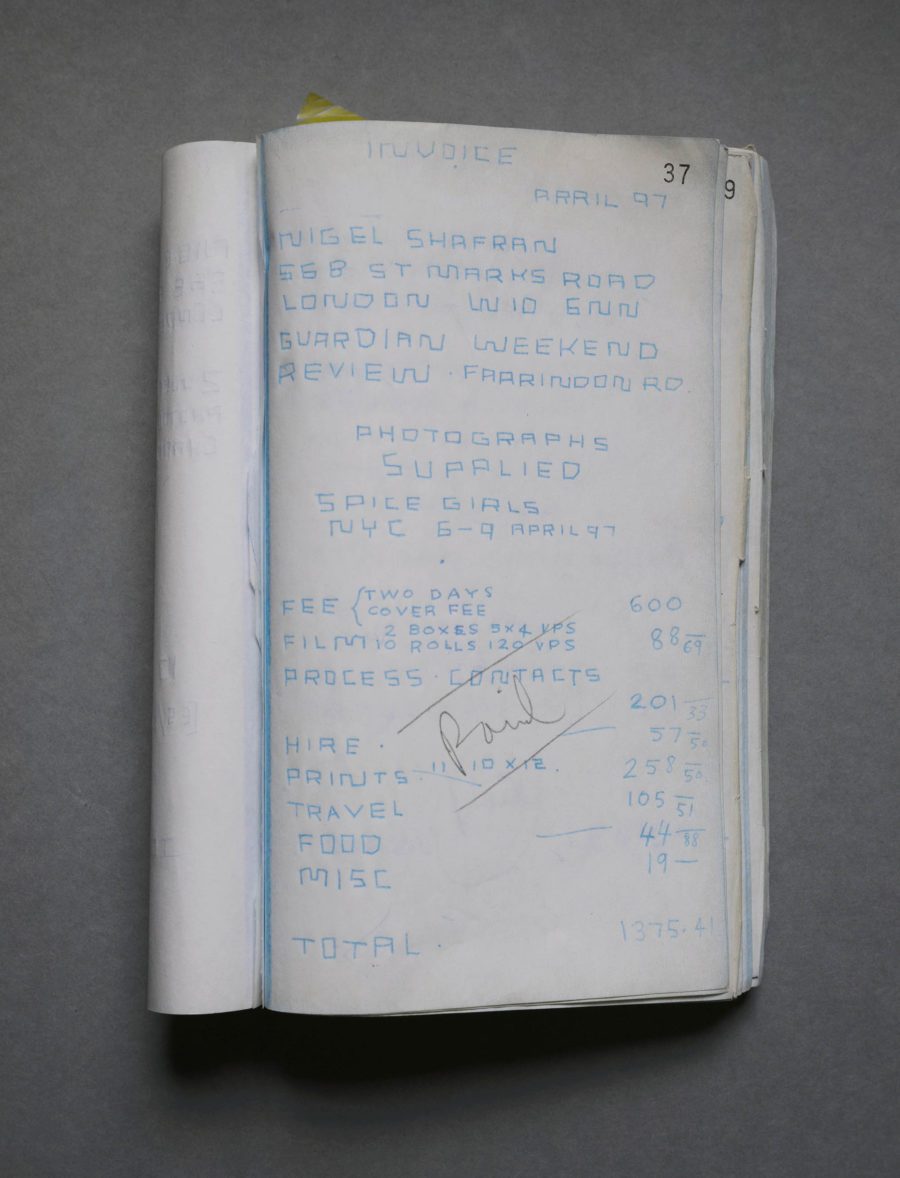 INVOICE
37
9
APRIL 97
NIGEL SHAFRAN
568 ST MARKS ROAD
LONDON W10 6NN
GUARDIAN WEEKEND
REVIEW · FARRINDON RD.
PHOTOGRAPHS
SUPPLIED
SPICE GIRLS
NYC 6-9 APRIL 97
FEE { TWO DAYS
COVER FEE 600
2 BOXES 5x4 VPS
FILM 10 ROLLS 120 VPS 88 69
PROCESS · CONTACTS
201 33
Paid
HIRE · 57 50
PRINTS · 11 10 x 12 . 258 50
TRAVEL 105 51
FOOD 44 88
MISC 19 —
TOTAL · 1375.41